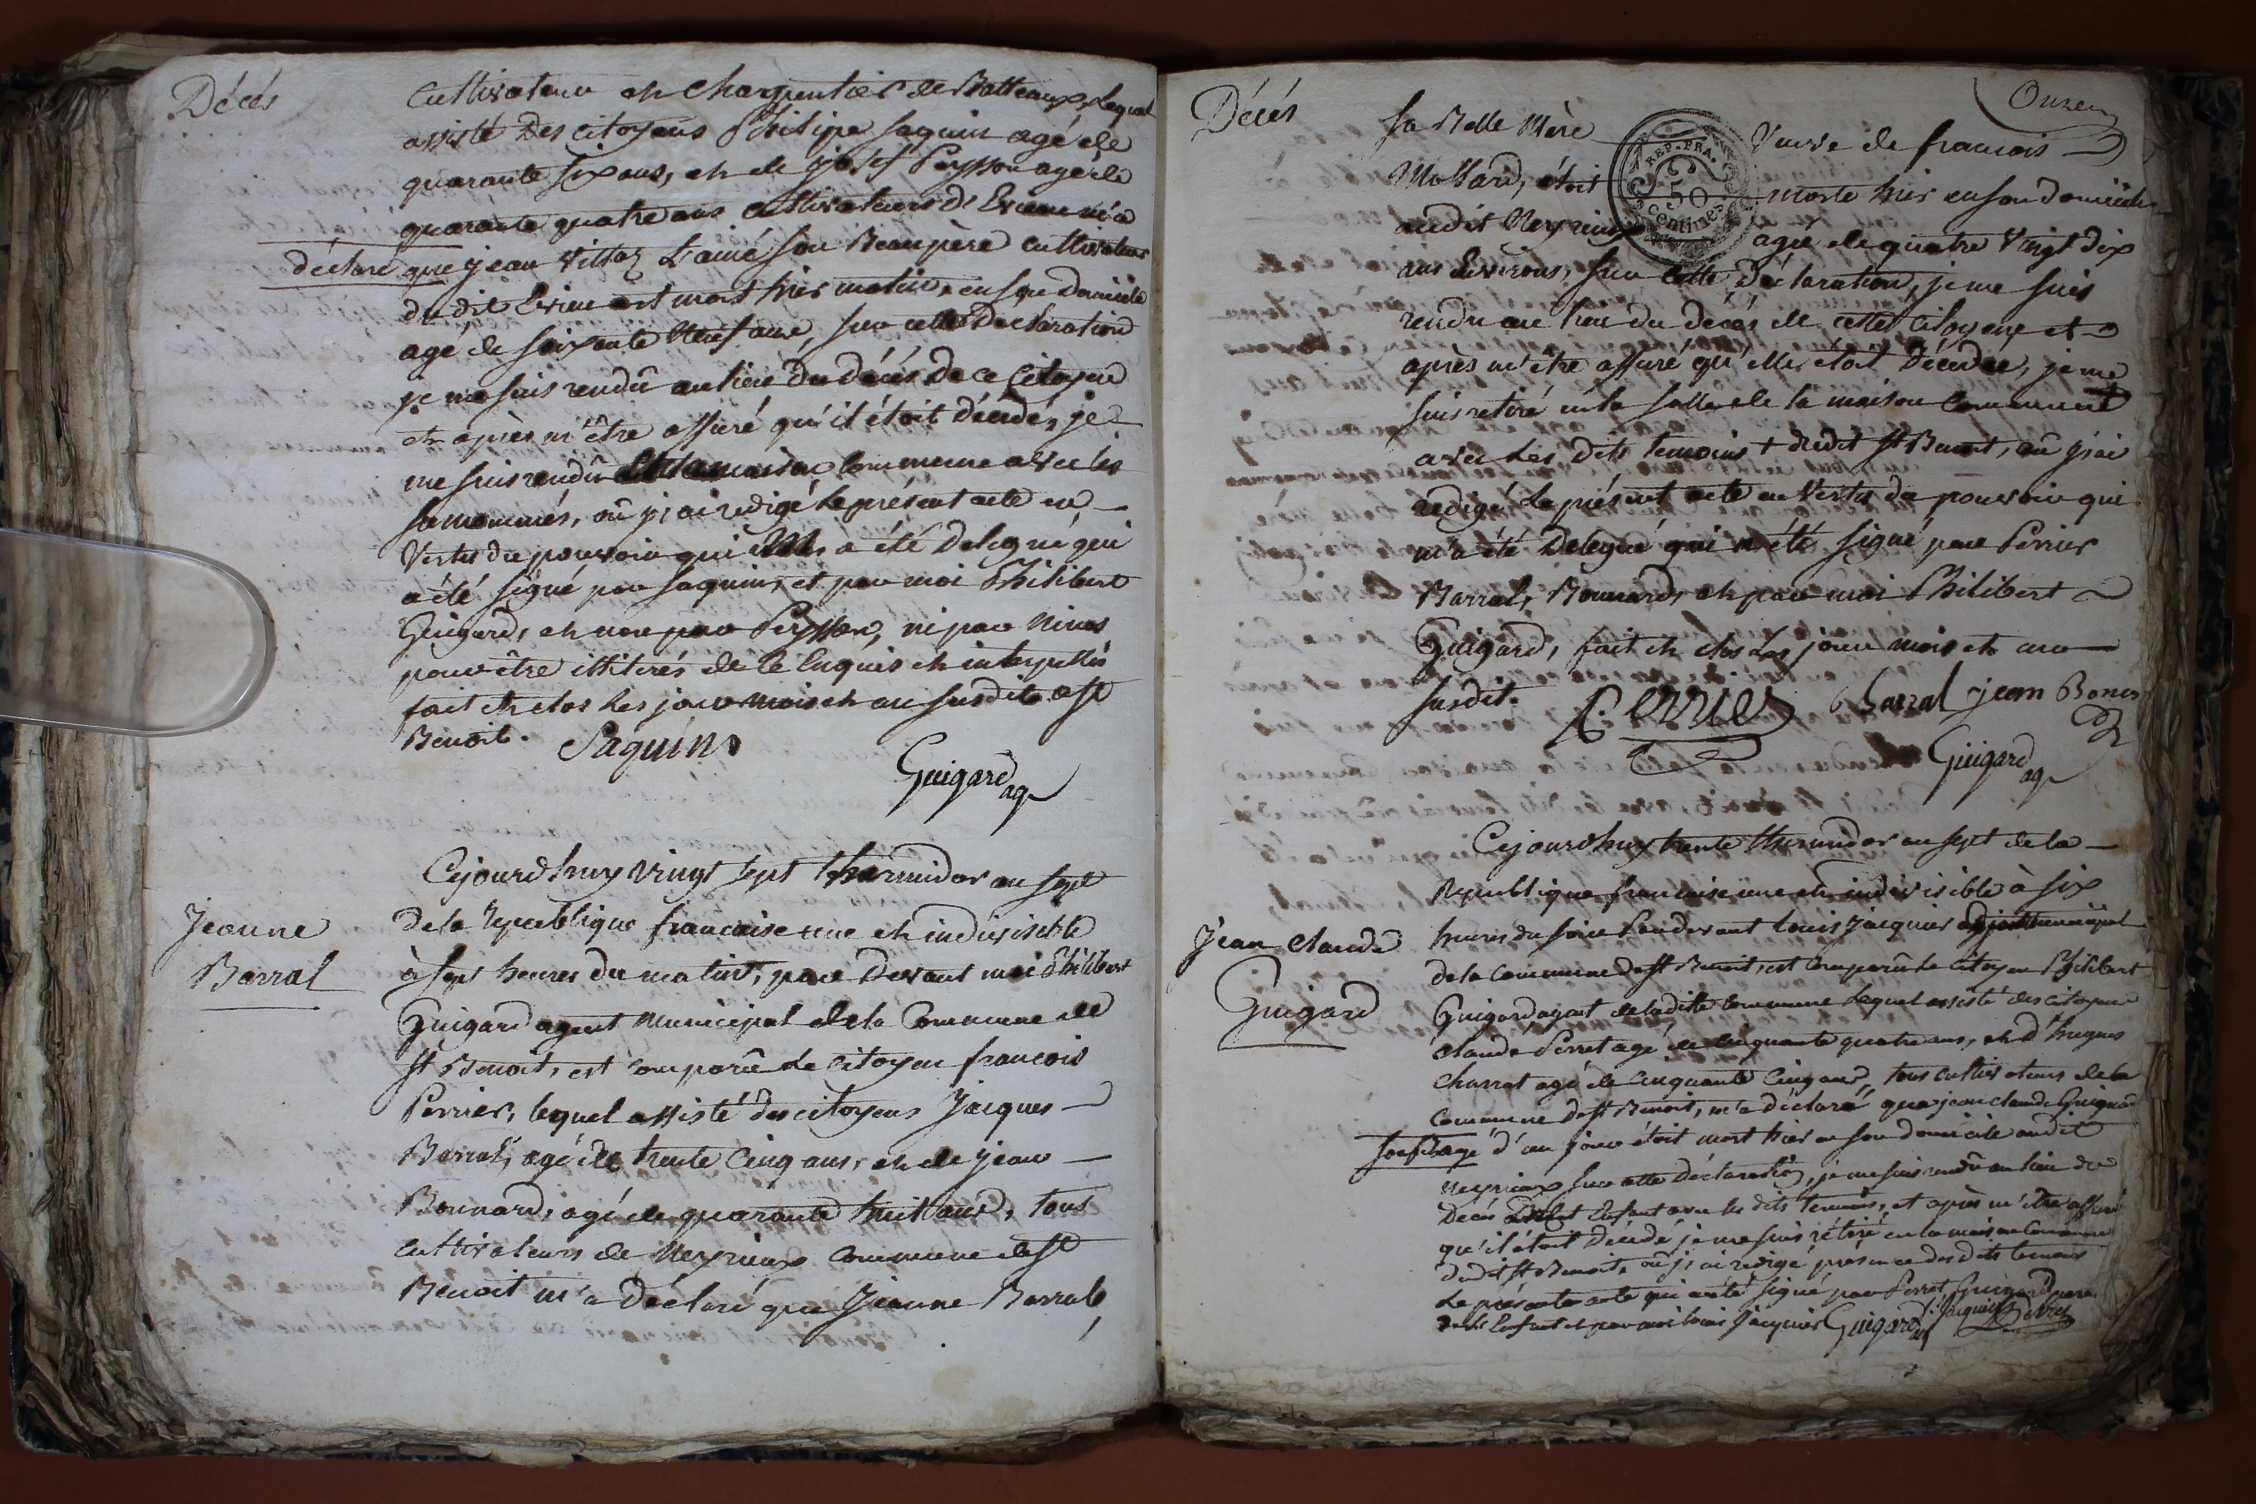 Décès
Cultivateur et Charpentier de Batteaux, lequel
assisté des citoyens Philipe Saquin agé de
quarante six ans, et de josef Peysson agé de
quarante quatre ans cultivateurs d'Evieu m'a
déclaré que jean Vittoz L'ainé son Beaupère cultivateur
du dit Evieu est mort hier matin, en son domicile
agé de soixante neuf ans, sur cette Declaration
je me suis rendû au lieu du décès de ce Citoyen
et après m'être assuré qu'il étoit décédé, je
me suis rendû en la maison Commune avec les
sunommés, où j'ai redigé le présent acte en
Vertu du pouvoir qui m'a été Delegué qui
a été signé par Saquin, et par moi Philibert
Guigard, et non par Peysson, ni par
pour être illiterés de ce Enquis et interpellés
fait et clos les jour mois et an susdits a St
Benoit. Saquin
Guigard ag
Cejourd'huy vingt sept thermidor an sept
de la republique francaise une et indivisible
Jeanne
Barral
à sept heures du matin, par Devant moi Philibert
Guigard agent Municipal de la Commune de
St Benoit, est comparû le citoyen francois
Perrier, lequel assisté des citoyens Jacques
Barral, agé de trente Cinq ans, et de jean
Bonnard, agé de quarante huit ans, tous
cultivateurs de Neyrieux Commune de St
Benoit m'a Déclaré que Jeanne Barral,
Décés
Onze
sa Belle Mère Veuve de francois
Mollard, étoit morte hier en son domicile
audit Neyrieux agée de quatre Vingt dix
REP. FRA.
50
centimes
ans Environs, sur cette Déclaration, je me suis
rendu au lieu du decès de cette Citoyene et
après m'être assuré qu'elle étoit Décédée, je me
suis retiré en la salle de la maison Commune
avec les dits temoins + dudit St Benoit, où j'ai
redigé le présent acte en Vertu du pouvoir qui
m'a été Delegué qui a été signé par Perrier
Barral, Bonnard, et par moi Philibert
Guigard, fait et clos les jour mois et an
susdit. Perrier Barral jean Bonar
Guigard ag
Cejourd'huy trente thermidor an sept de la
Republique francaise une et indivisible à six
Jean Claude
Guigard
heures du soir Pardevant Louis Jacquier adjoint municipal
de la Commune de St Benoit, est Comparû le citoyen Philibert
Guigard agent de ladite Commune lequel assisté des citoyens
Claude Perret agé de cinquante quatre ans, et d'hugues
Charrat agé de Cinquante Cinq ans, tous cultivateurs de la
Commune de St Benoit, m'a Déclaré que jean claude Guigard
son fils agé d'un jour étoit mort hier en son domicile audit
Neyrieux sur cette Déclaration, je me suis rendû au lieu du
Decès dudit Enfant avec les dits temoins, et après m'être assuré
qu'il étoit Décédé je me suis retiré en la maison Commune
dudit St Benoit, où j'ai redigé présence des dits temoins
Le présent acte qui a été signé par Perret, Guigard père
de l'Enfant et par moi Louis Jacquier Guigard Jacquier Perret